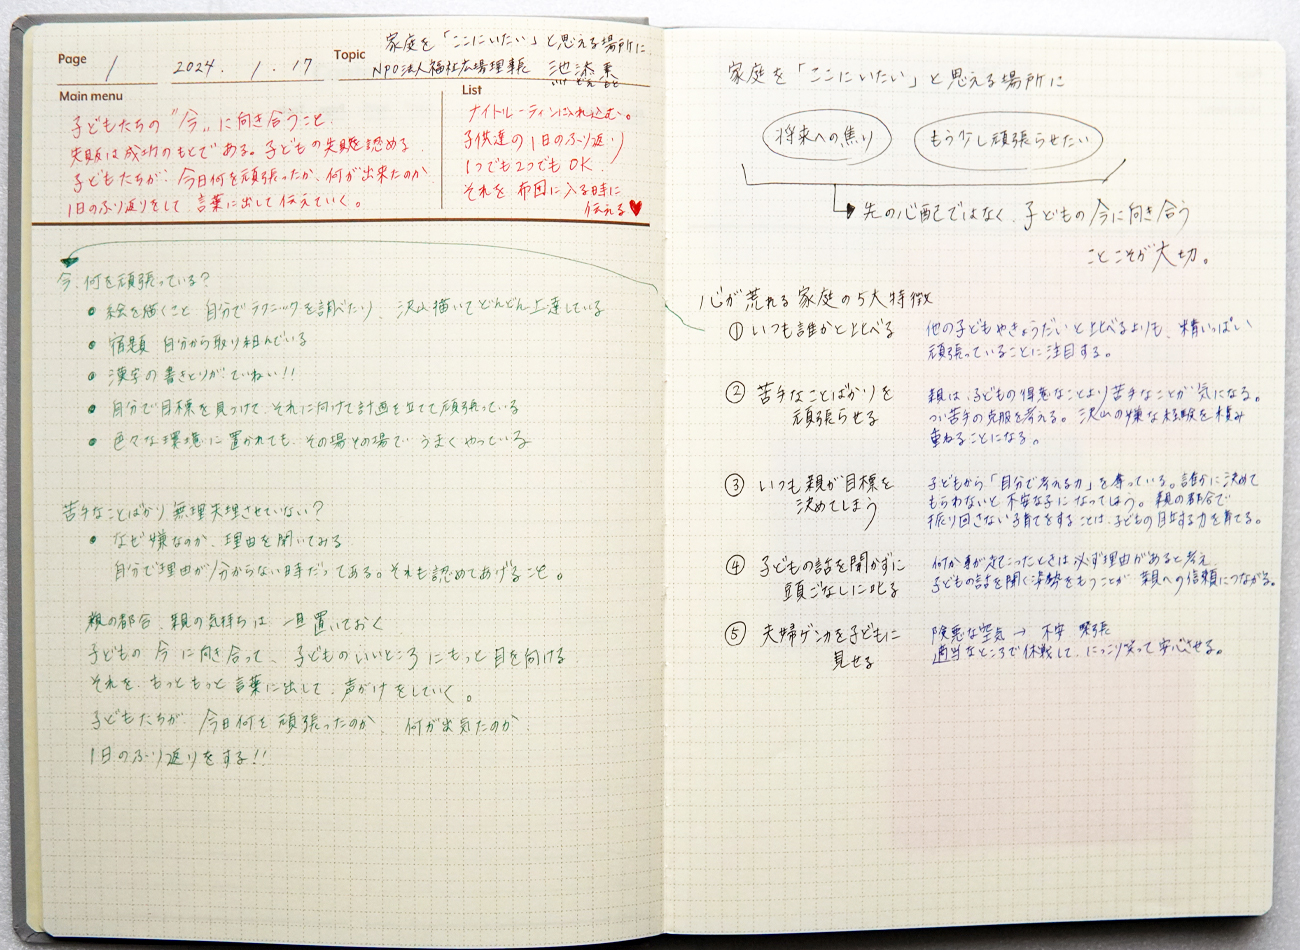 Page 1 2024.1.17 Topic 家庭を「ここにいたい」と思える場所に.
NPO法人福祉広場理事長 池添素
いけ ぞえ もと
Main menu
子どもたちの"今"に向き合うこと.
失敗は成功のもとである。子どもの失敗を認める.
子どもたちが、今日何を頑張ったか、何が出来たのか
1日のふり返りをして、言葉に出して伝えていく。
List
ナイトルーティンに入れ込む。
子供達の1日のふり返り
1つでも2つでもOK.
それを布団に入る時に
伝える♥
今、何を頑張っている?
• 絵を描くこと 自分でテクニックを調べたり、沢山描いてどんどん上達している
• 宿題 自分から取り組んでいる
• 漢字の書きとりがていねい!!
• 自分で目標を見つけて、それに向けて計画を立てて頑張っている
• 色々な環境に置かれても、その場その場で うまくやっている
苦手なことばかり、無理矢理させていない?
• なぜ嫌なのか、理由を聞いてみる.
自分で理由が分からない時だってある。それも認めてあげること。
親の都合、親の気持ちは 一旦置いておく
子どもの今に向き合って、子どものいいところにもっと目を向ける
それを、もっともっと言葉に出して、声がけをしていく。
子どもたちが 今日何を頑張ったのか、何が出気たのか
1日のふり返りをする!!
家庭を「ここにいたい」と思える場所に
将来への焦り もう少し頑張らせたい
先の心配ではなく、子どもの今に向き合う
ことこそが大切。
心が荒れる家庭の5大特徴
① いつも誰かと比べる
他の子どもやきょうだいと比べるよりも、精いっぱい
頑張っていることに注目する。
② 苦手なことばかりを
頑張らせる
親は、子どもの得意なことより苦手なことが気になる。
つい苦手の克服を考える。沢山の嫌な経験を積み
重ねることになる。
③ いつも親が目標を
決めてしまう
子どもから「自分で考える力」を奪っている。誰かに決めて
もらわないと不安な子になってしまう。親の都合で
振り回さない子育てをすることは、子どもの自立する力を育てる。
④ 子どもの話を聞かずに
頭ごなしに叱る
何か事が起こったときは必ず理由があると考え、
子どもの話を聞く姿勢をもつことが親への信頼につながる。
⑤ 夫婦ゲンカを子どもに
見せる
険悪な空気→不安 緊張
適当なところで休戦して、にっこり笑って安心させる。